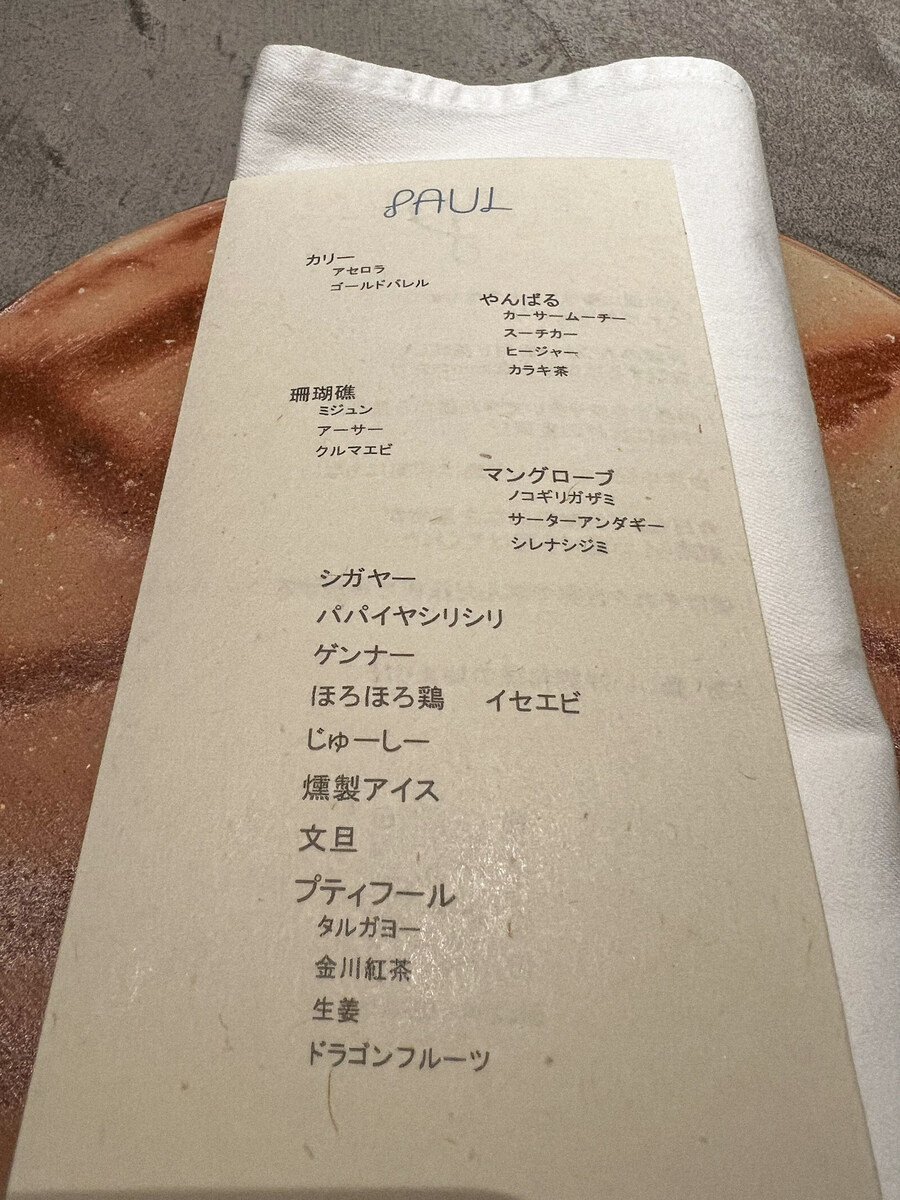 PAUL
カリー
アセロラ
ゴールドバレル
やんばる
カーサームーチー
スーチカー
ヒージャー
カラキ茶
珊瑚礁
ミジュン
アーサー
クルマエビ
マングローブ
ノコギリガザミ
サーターアンダギー
シレナシジミ
シガヤー
パパイヤシリシリ
ゲンナー
ほろほろ鶏 イセエビ
じゅーしー
燻製アイス
文旦
プティフール
タルガヨー
金川紅茶
生姜
ドラゴンフルーツ